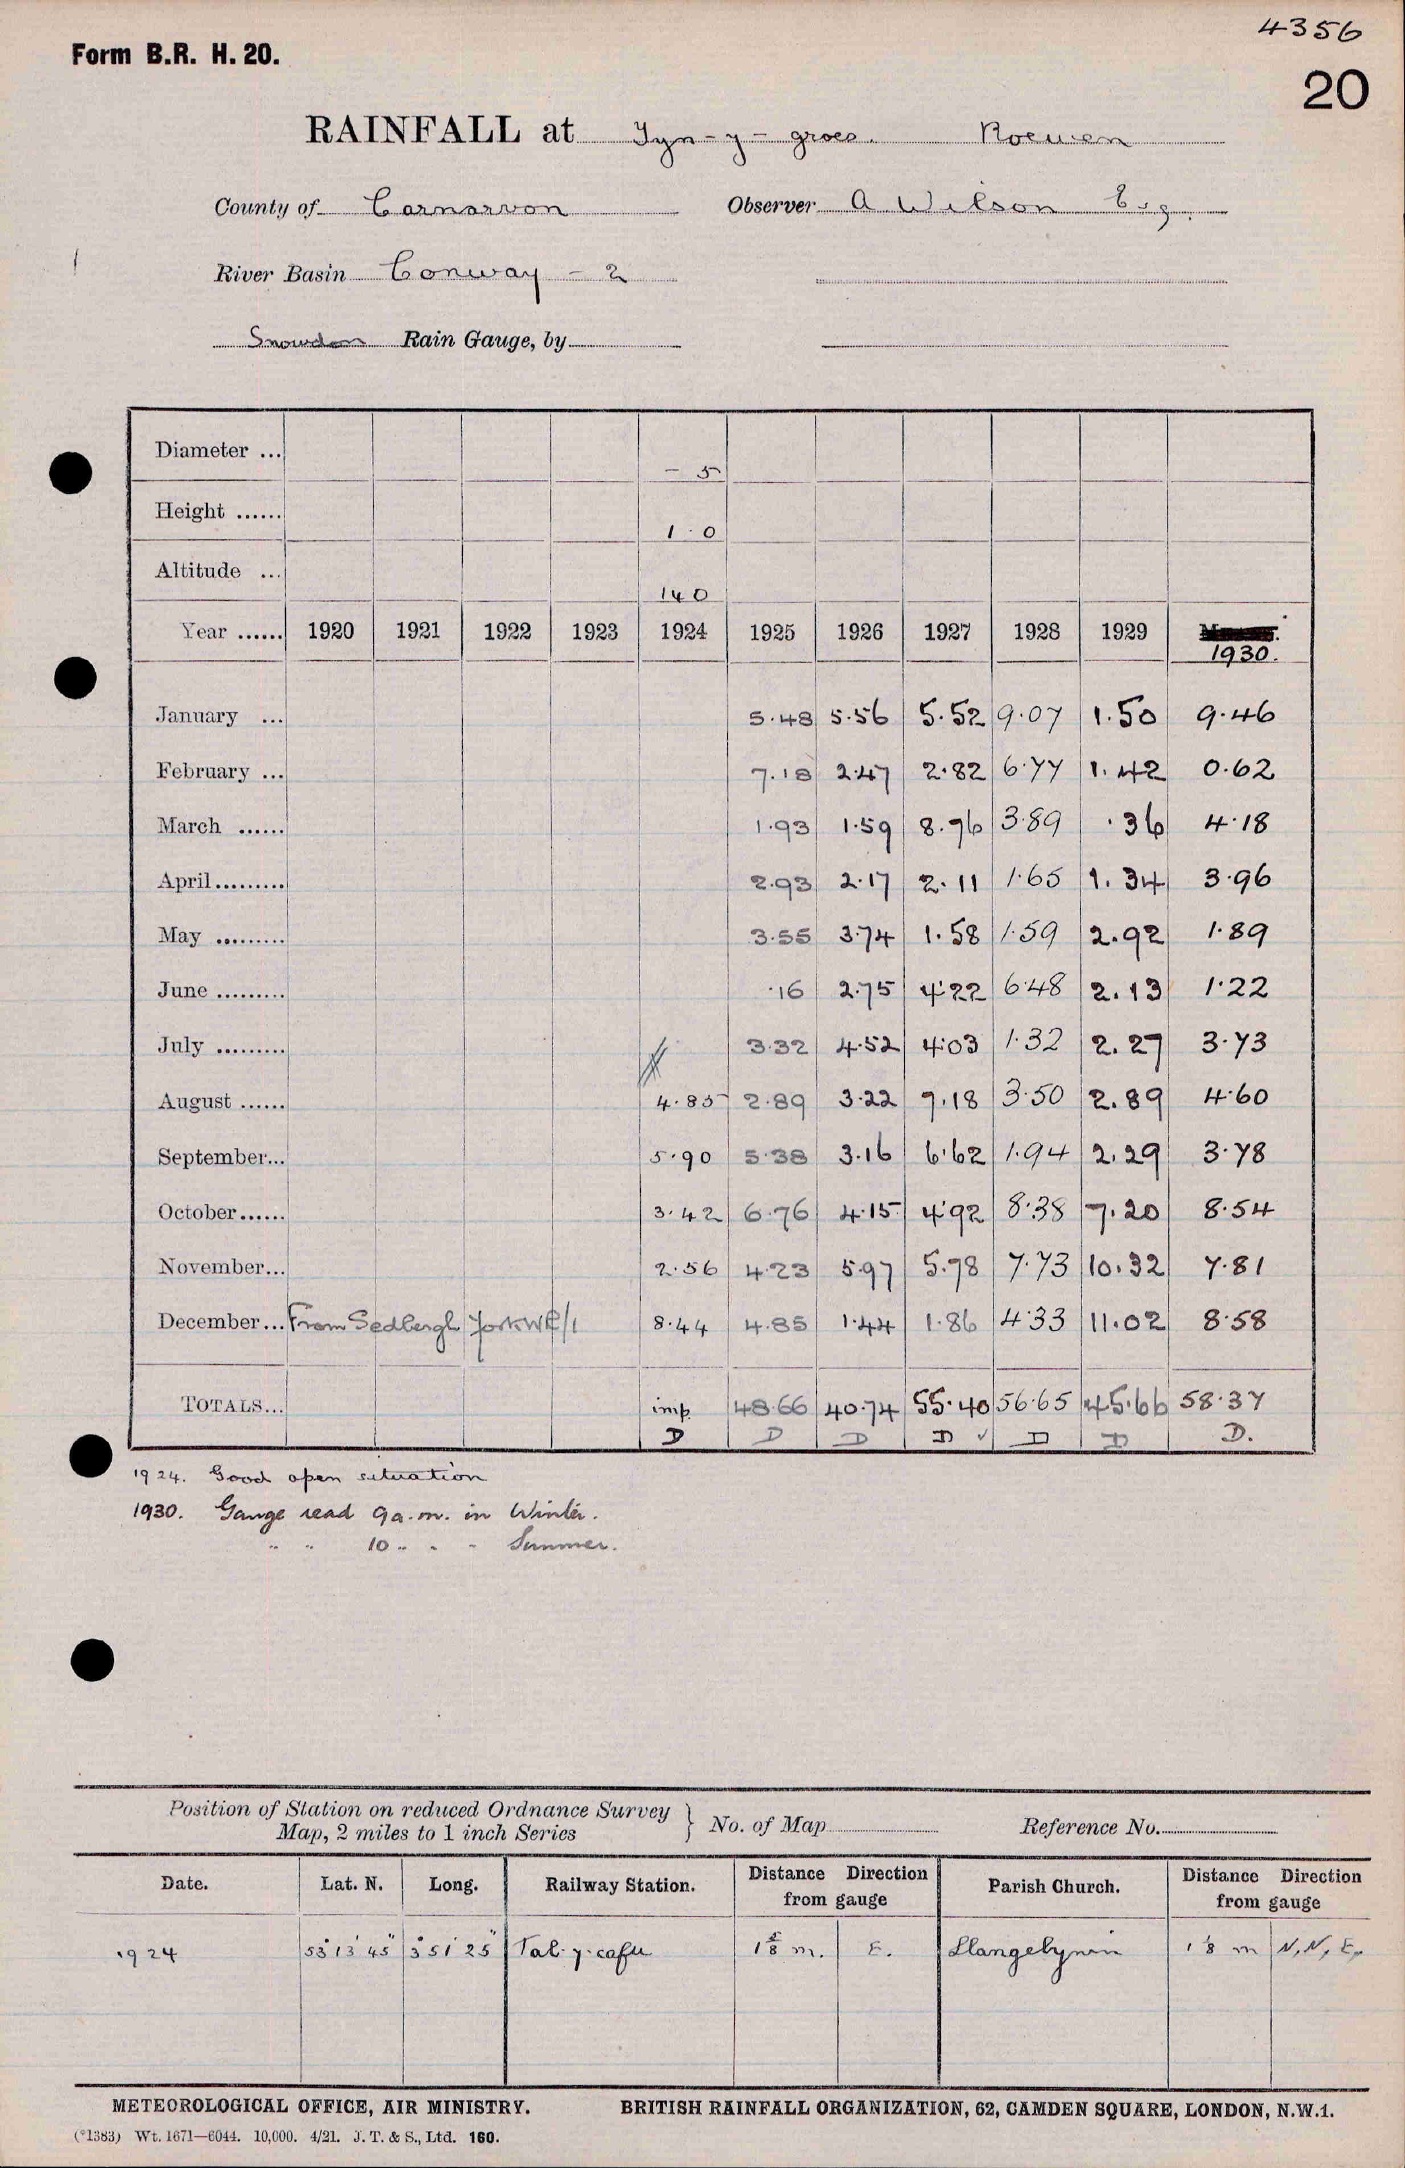 4356
Form B.R. H. 20.
20
RAINFALL at Tyn-y-groes. Roewen
County of Carnarvon Observer A Wilson Esq.
River Basin Conway - 2
Snowdon Rain Gauge, by
Diameter ... - 5
Height ...... 1 · 0
Altitude ... 140
Year ...... 1920 1921 1922 1923 1924 1925 1926 1927 1928 1929 1930.
January ... 5.48 5.56 5.52 9.07 1.50 9.46
February ... 7.18 2.47 2.82 6.77 1.42 0.62
March ...... 1.93 1.59 8.76 3.89 .36 4.18
April ......... 2.93 2.17 2.11 1.65 1.34 3.96
May ......... 3.55 3.74 1.58 1.59 2.92 1.89
June ......... .16 2.75 4.22 6.48 2.13 1.22
July ......... 3.32 4.52 4.03 1.32 2.27 3.73
August ...... 4.85 2.89 3.22 7.18 3.50 2.89 4.60
September... 5.90 5.38 3.16 6.62 1.94 2.29 3.78
October...... 3.42 6.76 4.15 4.92 8.38 7.20 8.54
November... 2.56 4.23 5.97 5.78 7.73 10.32 7.81
December... From Sedbergh York WR/1 8.44 4.85 1.44 1.86 4.33 11.02 8.58
TOTALS... imp. 48.66 40.74 55.40 56.65 45.66 58.37
D D D D ✓ D D D.
1924. Good open situation
1930. Gauge read 9 a.m. in Winter.
" " 10 " " " Summer.
Position of Station on reduced Ordnance Survey
Map, 2 miles to 1 inch Series } No. of Map Reference No.
Date. Lat. N. Long. Railway Station. Distance Direction from gauge Parish Church. Distance Direction from gauge
1924 53° 13' 45" 3° 51' 25" Tal-y-cafn 1 5/8 m. E. Llangelynin 1 1/8 m N, N, E,
METEOROLOGICAL OFFICE, AIR MINISTRY. BRITISH RAINFALL ORGANIZATION, 62, CAMDEN SQUARE, LONDON, N.W.1.
(*1383) Wt. 1671—6044. 10,000. 4/21. J. T. & S., Ltd. 160.